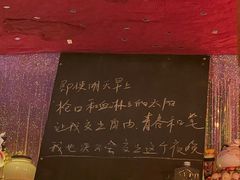 即使明天早上
枪口和血淋淋的太阳
让我交出自由、青春和笔
我也决不会交出这个夜晚